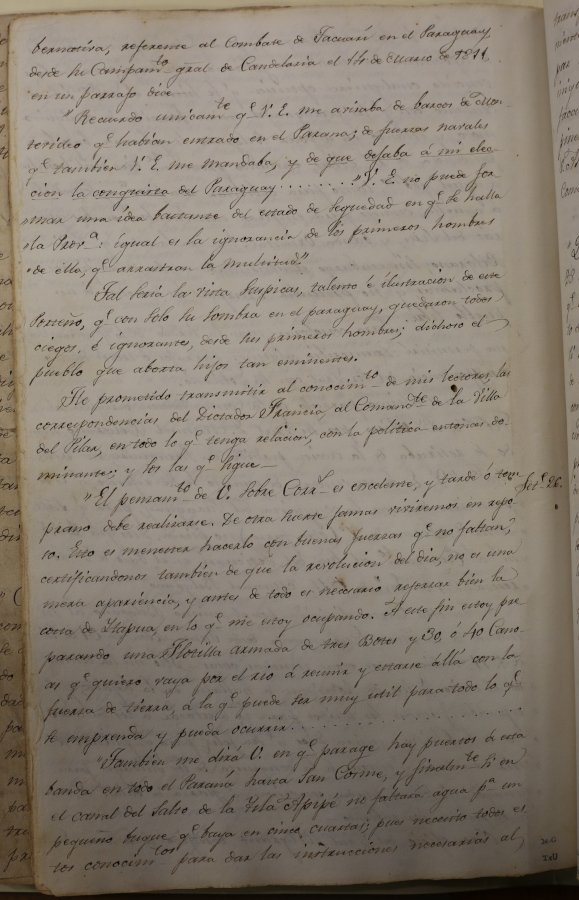 bernativa, referente al Combate de Tacuarí en el Paraguay
desde su Campamto gral de Candelaria el 14 de Marzo de 1811
en un parrafo dice
"Recuerdo unicamte qe V. E. me avisaba de barcos de Mon-
tevideo qe habian entrado en el Parana; de fuerzas navales
qe tambien V. E. me mandaba, y de que dejaba á mi elec-
cion la conquista del Paraguay . . . . . . . "V. E. no puede for
"mar una idea bastante del estado de seguedad en qe se halla
"la Prova: igual es la ignorancia de los primeros hombres
"de ella, qe arrastran la multitud."
Tal seria la vista suspicas, talento é ilustracion de este
Porteño, qe con solo su sombra en el paraguay, quedaron todos
ciegos, é ignorantes, desde sus primeros hombres; dichoso el
pueblo que aborta hijos tan eminentes.
He prometido transmitir al conocimto de mis lectores, las
correspondencias del Dictador Francia, al Comandte de la Villa
del Pilar, en todo lo qe tenga relacion, con la politica entonces do-
minantes; y los las qe sigue—
"El pensamto de V. sobre Corrs es escelente, y tarde ó tem Set.e 26.
prano debe realizarse. De otra suerte jamas viviremos en repo-
so. Esto es menester hacerlo con buenas fuerzas qe no faltan,
certificandonos también de que la revolucion del dia, no es una
mera apariencia, y antes de todo es necesario reforzar bien la
costa de Itapua, en lo qe me estoy ocupando. A este fin estoy pre
parando una Flotilla armada de tres Botes y 30, ó 40 Cano-
as qe quiero vaya por el rio á reunir y estarse allá con la
fuerza de tierra, á la qe puede ser muy util para todo lo qe
se emprenda y pueda ocurrir. . . . . . . . . . . . . .
"Tambien me dirá V. en qe parage hay puertos á esta
banda en todo el Paraná hasta San Cosme, y finalmte si en
el canal del Salto de la Ysla Apipé no faltará agua pa un
pequeño buque qe baja en cinco cuartas; pues necesito todos es
tos conocimtos para dar las instrucciones necesarias al